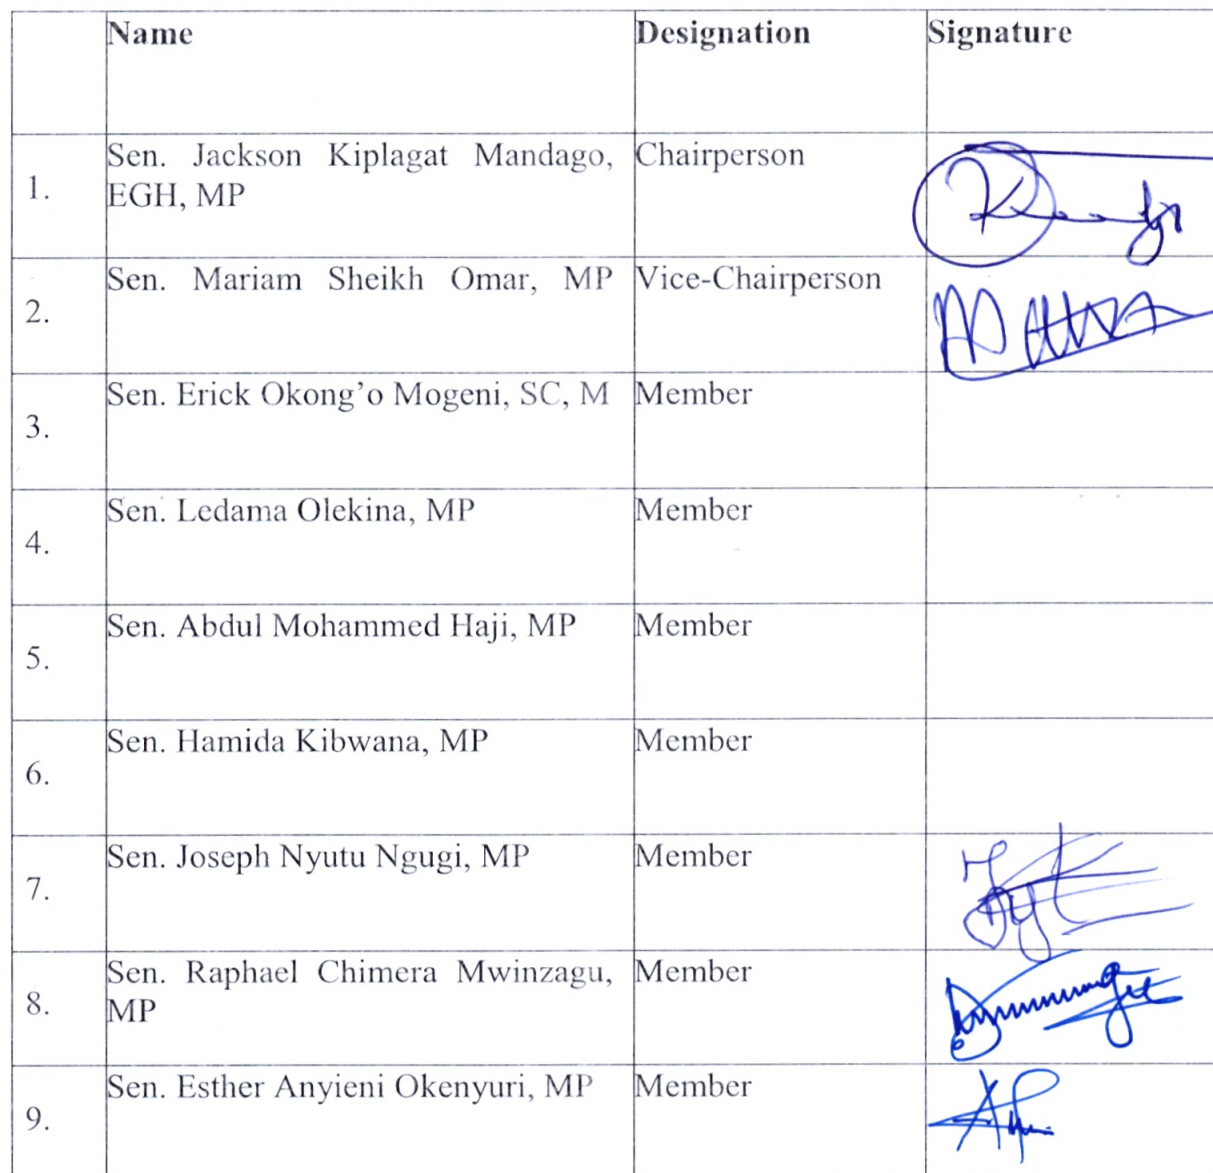 Name Designation Signature
1. Sen. Jackson Kiplagat Mandago, Chairperson
EGH, MP
2. Sen. Mariam Sheikh Omar, MP Vice-Chairperson
3. Sen. Erick Okong’o Mogeni, SC, M Member
4. Sen. Ledama Olekina, MP Member
5. Sen. Abdul Mohammed Haji, MP Member
6. Sen. Hamida Kibwana, MP Member
7. Sen. Joseph Nyutu Ngugi, MP Member
8. Sen. Raphael Chimera Mwinzagu, Member
MP
9. Sen. Esther Anyieni Okenyuri, MP Member